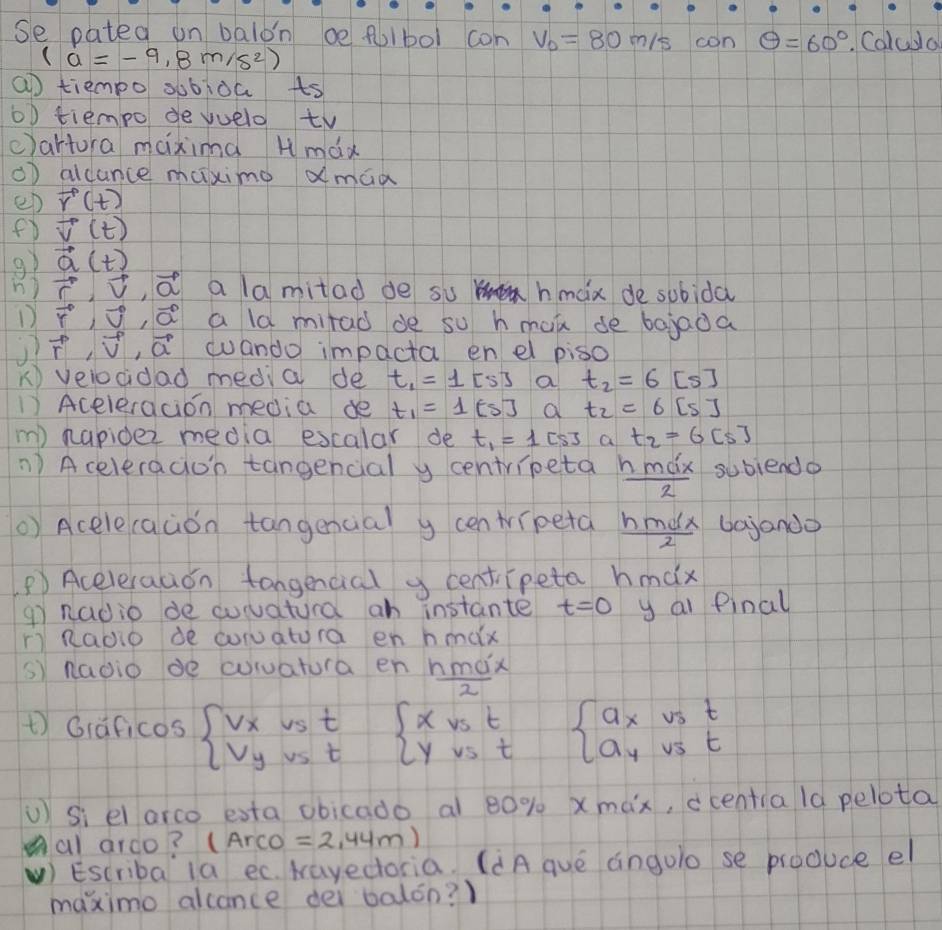 Se patea un balón de fulbol con V₀ = 80 m/s con θ = 60°. Calcula
(a = -9,8 m/s²)
a) tiempo subida ts
b) tiempo de vuelo tv
c) artura máxima H máx
d) alcance máximo xmáa
e) r⃗(t)
f) v⃗(t)
g) a⃗(t)
h) r⃗, v⃗, a⃗ a la mitad de su hmáx de subida
i) r⃗, v⃗, a⃗ a la mitad de su hmáx de bajada
j) r⃗, v⃗, a⃗ cuando impacta en el piso
k) velocidad media de t₁ = 1 [s] a t₂ = 6 [s]
l) Aceleración media de t₁ = 1 [s] a t₂ = 6 [s]
m) rapidez media escalar de t₁ = 1 [s] a t₂ = 6 [s]
n) Aceleración tangencial y centrípeta hmáx/2 subiendo
o) Aceleración tangencial y centrípeta hmáx/2 bajando
p) Aceleración tangencial y centrípeta hmáx
q) radio de curvatura an instante t=0 y al final
r) Radio de curvatura en hmáx
s) radio de curvatura en hmáx/2
t) Gráficos { Vx vs t { x vs t { ax vs t
Vy vs t y vs t ay vs t
u) Si el arco esta ubicado al 80% xmáx, ¿centra la pelota
al arco? (Arco = 2,44m)
v) Escriba la ec. trayectoria. (¿A qué ángulo se produce el
máximo alcance del balón?)